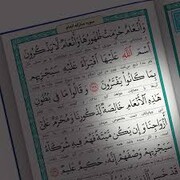 وَأَنْعَامٌ حُرِّمَتْ ظُهُورُهَا وَأَنْعَامٌ لَا يَذْكُرُونَ
اسْمَ اللَّهِ عَلَيْهَا افْتِرَاءً عَلَيْهِ سَيَجْزِيهِمْ
بِمَا كَانُوا يَفْتَرُونَ وَقَالُوا مَا فِي بُطُونِ
هَذِهِ الْأَنْعَامِ خَالِصَةٌ لِذُكُورِنَا وَمُحَرَّمٌ عَلَى
أَزْوَاجِنَا وَإِنْ يَكُنْ مَيْتَةً فَهُمْ فِيهِ شُرَكَاءُ
سَيَجْزِيهِمْ وَصْفَهُمْ إِنَّهُ حَكِيمٌ عَلِيمٌ